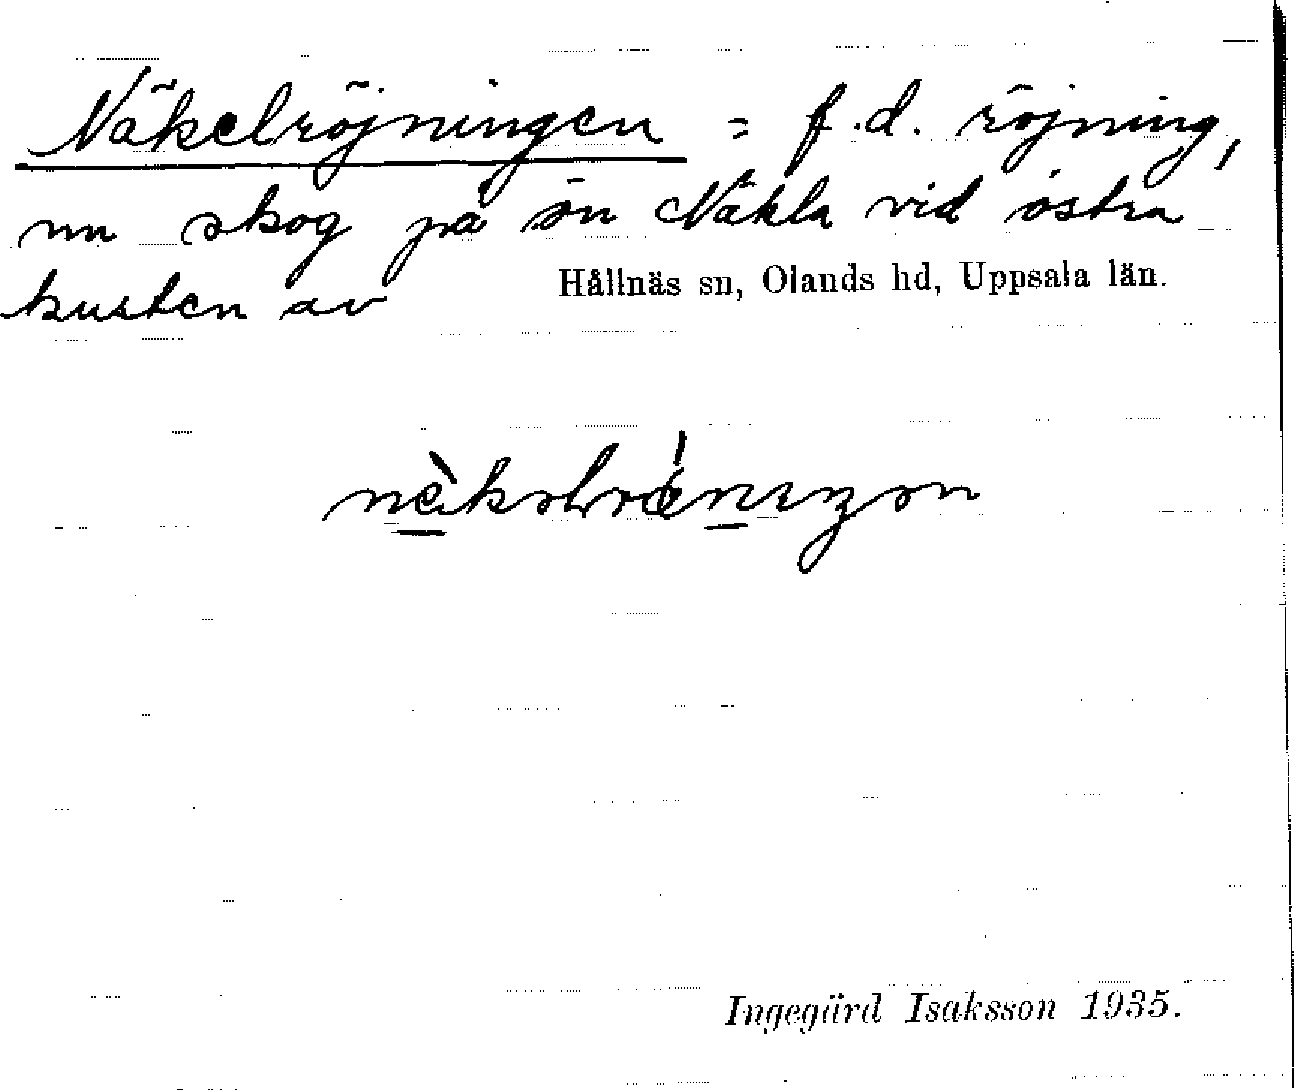 Näkelröjningen = f.d. röjning,
nu skog på ön Näkla vid östra
kusten av Hållnäs sn, Olands hd, Uppsala län.
Ingegärd Isaksson 1935.